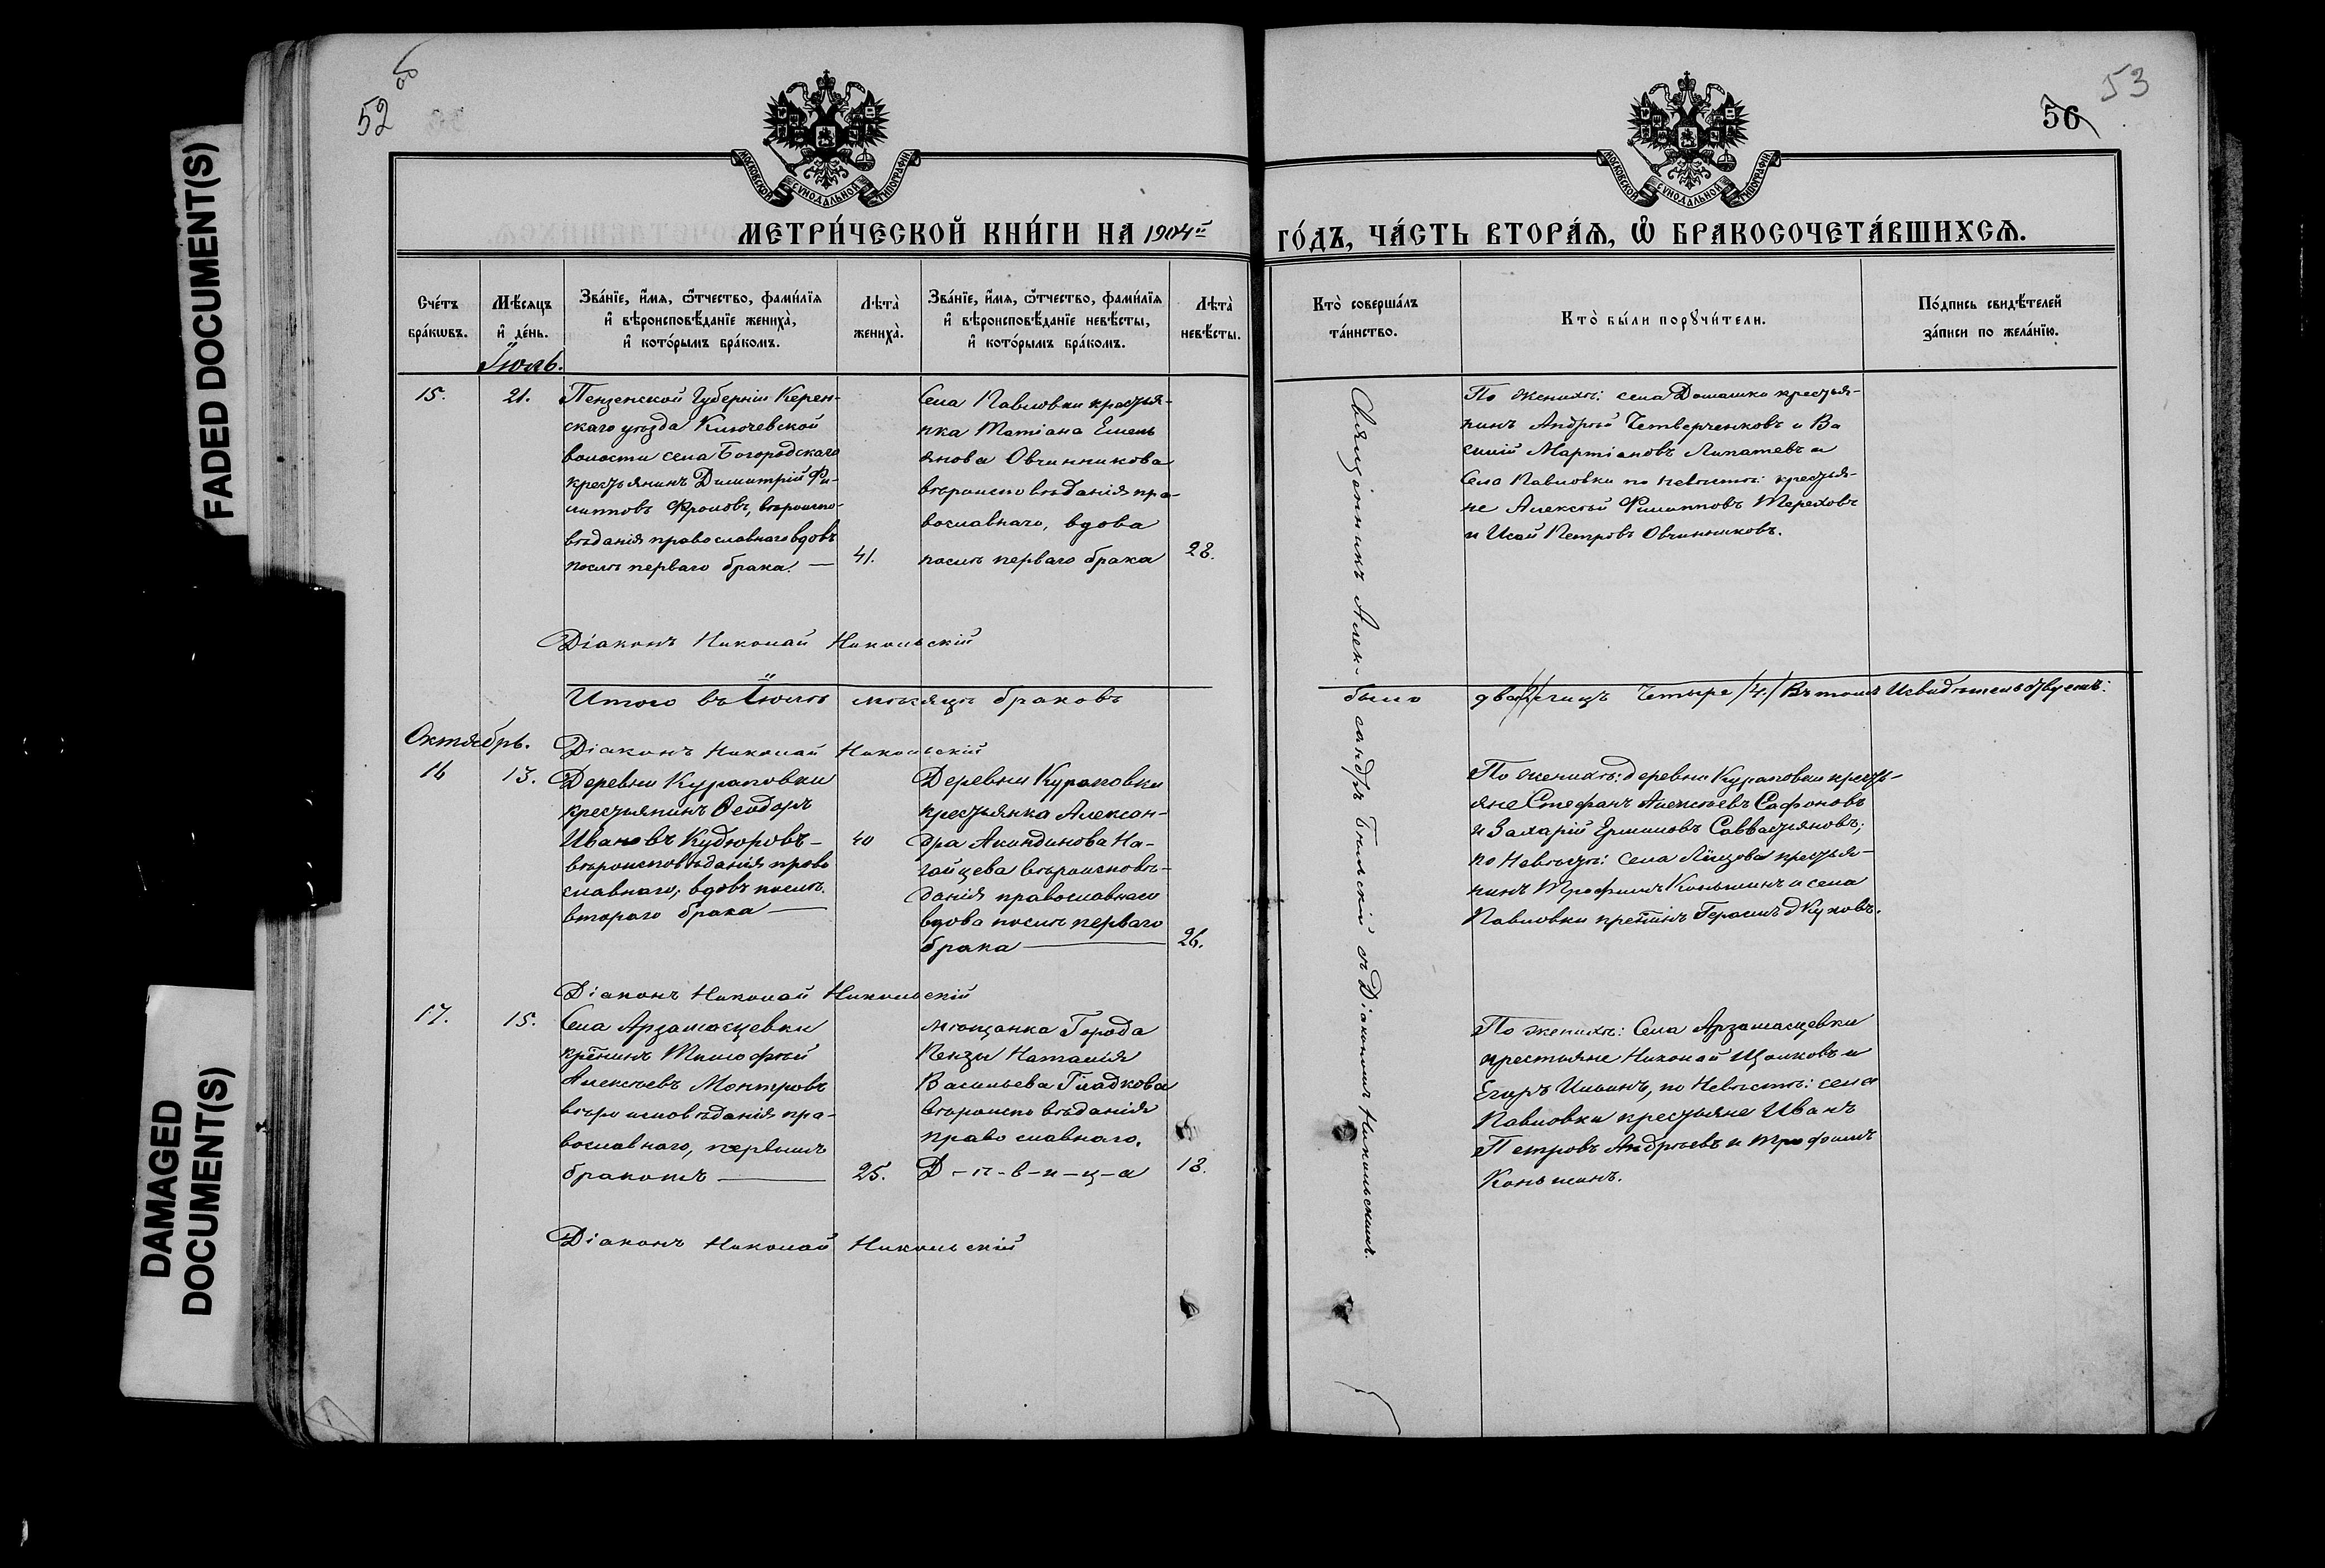 FADED DOCUMENT(S)
DAMAGED
DOCUMENT(S)
52 об
МОСКОВСКОЙ СѴНОДАЛЬНОЙ ТИПОГРАФІИ
МЕТРИ́ЧЕСКОЙ КНИ́ГИ НА 1904й
Сче́тъ
бра́кѡвъ.
Мѣ́сяцъ
и҆ де́нь.
Зва́нїе, и҆́мѧ, ѻ҆́тчество, фами́лїѧ
и҆ вѣроисповѣ́данїе жениха̀,
и҆ кото́рымъ бра́комъ.
Лѣта̀
жениха̀.
Зва́нїе, и҆́мѧ, ѻ҆́тчество, фами́лїѧ
и҆ вѣроисповѣ́данїе невѣ́сты,
и҆ кото́рымъ бра́комъ.
Лѣта̀
невѣ́сты.
Іюль.
15.
21.
Пензенской Губерніи Керен-
скаго уѣзда Ключевской
волости села Богородскаго
крестьянинъ Димитрій Фи-
липповъ Фроловъ, вѣроиспо-
вѣданія православнаго вдовъ
послѣ перваго брака. —
41.
Села Павловки крестья-
нка Татіана Емель
янова Овчинникова
вѣроисповѣданія пра-
вославнаго, вдова
послѣ перваго брака
28.
Діаконъ Николай Никольскій
Итого въ Іюлѣ мѣсяцѣ браковъ
Октябрь.
Діаконъ Николай Никольскій
16
13.
Деревни Кураповки
крестьянинъ Ѳеодоръ
Ивановъ Кудюровъ-
вѣроисповѣданія право
славнаго, вдовъ послѣ
втораго брака —
40
Деревни Кураповки
крестьянка Алексан-
дра Акиндинова На-
гайцева вѣроисповѣ-
данія православнаго
вдова послѣ перваго
брака —
26.
Діаконъ Николай Никольскій
17.
15.
Села Арзамасцевки
кр̃нинъ Тимофей
Алексѣевъ
вѣроисповѣданія пра-
вославнаго, первымъ
бракомъ —
25.
мѣщанка Города
Пензы Наталія
Васильева Гладкова
вѣроисповѣданія
православнаго.
Д-ѣ-в-и-ц-а
18.
Діаконъ Николай Никольскій
53
56
МОСКОВСКОЙ СѴНОДАЛЬНОЙ ТИПОГРАФІИ
ГО́ДЪ, ЧА́СТЬ ВТОРА́Ѧ, Ѽ БРАКОСОЧЕТА́ВШИХСѦ.
Кто̀ соверша́лъ
та́инство.
Кто̀ бы́ли порꙋчи́тели.
По́дпись свидѣ́телей
за́писи по жела́нїю.
Священникъ Александръ Бѣльскій съ Діакономъ Никольскимъ.
По женихѣ: села Домашки крестья-
нинъ Андрей Четверченковъ и Ва
силій Мартіановъ Липатевъ и
Села Павловки по Невѣстѣ: крестья-
не Алексѣй Филипповъ Тереховъ
и Исай Петровъ Овчинниковъ.
было два/2/ лицъ Четыре /4/ Въ томъ и свидѣтельствуемъ:
По женихѣ: деревни Кураповки кресть-
яне Стефанъ Алексѣевъ Сафоновъ
и Захарій Ермиловъ Савватьяновъ;
по Невѣстѣ: села крестья-
нинъ Трофимъ Коньшинъ и села
Павловки крест̃инъ Герасимъ
По женихѣ: Села Арзамасцевки
крестьяне Николай Щолковъ и
Егоръ Ильинъ, по Невѣстѣ: села
Павловки крестьяне Иванъ
Петровъ Андреевъ и Трофимъ
Коньшинъ.